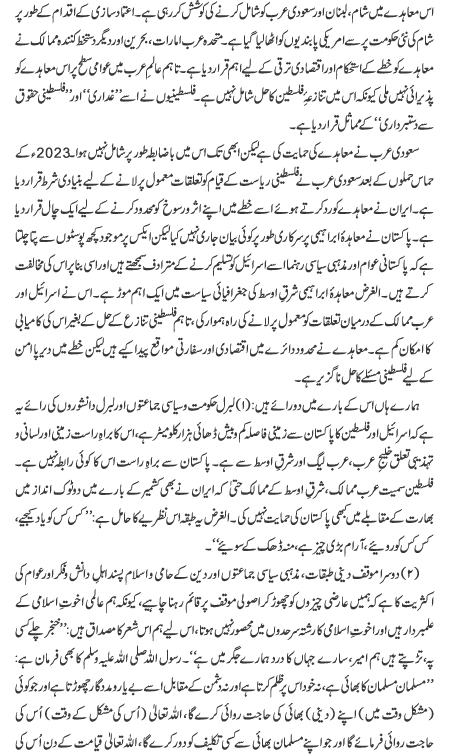 اس معاہدے میں شام، لبنان اور سعودی عرب کو شامل کرنے کی کوشش کر رہی ہے۔ اعتماد سازی کے اقدام کے طور پر
شام کی نئی حکومت پر سے امریکی پابندیوں کو اٹھالیا گیا ہے۔ متحدہ عرب امارات، بحرین اور دیگر دستخط کنندہ ممالک نے
معاہدے کو خطے کے استحکام اور اقتصادی ترقی کے لیے اہم قرار دیا ہے۔ تاہم عالمِ عرب میں عوامی سطح پر اس معاہدے کو
پذیرائی نہیں ملی کیونکہ اس میں تنازعۂ فلسطین کا حل شامل نہیں ہے۔ فلسطینیوں نے اسے ’’غداری‘‘ اور ’’فلسطینی حقوق
سے دستبرداری‘‘ کے مماثل قرار دیا ہے۔
سعودی عرب نے معاہدے کی حمایت کی ہے لیکن ابھی تک اس میں باضابطہ طور پر شامل نہیں ہوا۔ 2023ء کے
حماس حملوں کے بعد سعودی عرب نے فلسطینی ریاست کے قیام کو تعلقات معمول پر لانے کے لیے بنیادی شرط قرار دیا
ہے۔ ایران نے معاہدے کو رد کرتے ہوئے اسے خطے میں اپنے اثر و رسوخ کو محدود کرنے کے لیے ایک چال قرار دیا
ہے۔ پاکستان نے معاہدۂ ابراہیمی پر سرکاری طور پر کوئی بیان جاری نہیں کیا لیکن ایکس پر موجود کچھ پوسٹوں سے پتا چلتا
ہے کہ پاکستانی عوام اور مذہبی سیاسی رہنما اسے اسرائیل کو تسلیم کرنے کے مترادف سمجھتے ہیں اور اسی بنا پر اس کی مخالفت
کرتے ہیں۔ الغرض معاہدۂ ابراہیمی شرقِ اوسط کی جغرافیائی سیاست میں ایک اہم موڑ ہے۔ اس نے اسرائیل اور
عرب ممالک کے درمیان تعلقات کو معمول پر لانے کی راہ ہموار کی، تاہم فلسطینی تنازع کے حل کے بغیر اس کی کامیابی
کا امکان کم ہے۔ معاہدے نے محدود دائرے میں اقتصادی اور سفارتی مواقع پیدا کیے ہیں لیکن خطے میں دیرپا امن
کے لیے فلسطینی مسئلے کا حل ناگزیر ہے۔
ہمارے ہاں اس کے بارے میں دو رائے ہیں: (۱) لبرل حکومت و سیاسی جماعتوں اور لبرل دانشوروں کی رائے یہ
ہے کہ اسرائیل اور فلسطین کا پاکستان سے زمینی فاصلہ کم و بیش ڈھائی ہزار کلومیٹر ہے، اس کا براہِ راست زمینی اور لسانی و
تہذیبی تعلق خلیجِ عرب، عرب لیگ اور شرقِ اوسط سے ہے۔ پاکستان سے براہِ راست اس کا کوئی رابطہ نہیں ہے۔
فلسطین سمیت عرب ممالک، شرقِ اوسط کے ممالک حتیٰ کہ ایران نے بھی کشمیر کے بارے میں دوٹوک انداز میں
بھارت کے مقابلے میں کبھی پاکستان کی حمایت نہیں کی۔ الغرض یہ طبقہ اس نظریے کا حامل ہے: ’’کس کس کو یاد کیجیے،
کس کس کو رویئے، آرام بڑی چیز ہے، منہ ڈھک کے سویئے‘‘۔
(۲) دوسرا موقف دینی طبقات، مذہبی سیاسی جماعتوں اور دین کے حامی و اسلام پسند اہلِ دانش و فکر اور عوام کی
اکثریت کا ہے کہ ہمیں عارضی چیزوں کو چھوڑ کر اصولی موقف پر قائم رہنا چاہیے، کیونکہ ہم عالمی اخوتِ اسلامی کے
علمبردار ہیں اور اخوتِ اسلامی کا رشتہ سرحدوں میں محصور نہیں ہوتا، اس لیے ہم اس شعر کا مصداق ہیں: ’’خنجر چلے کسی
پہ، تڑپتے ہیں ہم امیر، سارے جہاں کا درد ہمارے جگر میں ہے‘‘۔ رسول اللہ صلی اللہ علیہ وسلم کا بھی فرمان ہے:
’’مسلمان مسلمان کا بھائی ہے، نہ خود اس پر ظلم کرتا ہے اور نہ دشمن کے مقابل اسے بے یار و مددگار چھوڑتا ہے اور جو کوئی
(مشکل وقت میں) اپنے (دینی) بھائی کی حاجت روائی کرے گا، اللہ تعالیٰ (اُس کی مشکل کے وقت) اُس کی
حاجت روائی فرمائے گا اور جو اپنے مسلمان بھائی سے کسی تکلیف کو دور کرے گا، اللہ تعالیٰ قیامت کے دن اُس کی